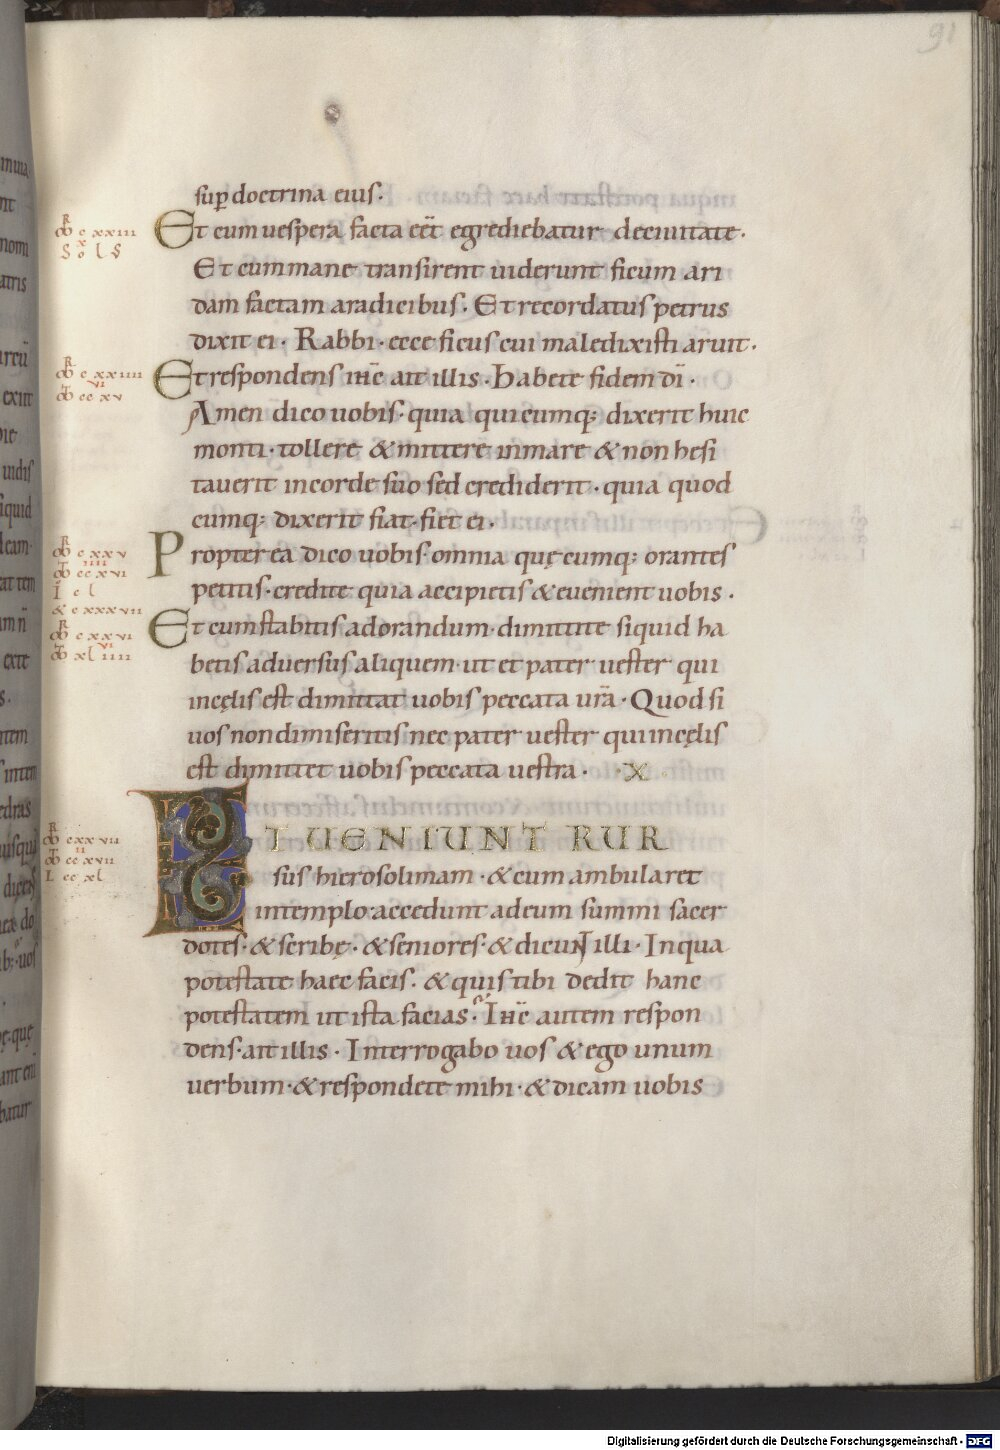 91
sup̄ doctrina eius.
Et cum uespera facta eēt egrediebatur deciuitate.
Et cum mane transirent uiderunt ficum ari
dam factam aradicibus. Et recordatus petrus
dixit ei. Rabbi. ecce ficus cui maledixisti aruit.
Et respondens ihc̄ ait illis. Habete fidem dī.
Amen dico uobis. quia quicumq; dixerit huic
monti. tollere & mittere inmare & non hesi
tauerit incorde suo sed crediderit. quia quod
cumq; dixerit fiat. fiet ei.
Propter ea dico uobis. omnia quę cumq; orantes
petitis. credite quia accipietis & euenient uobis.
Et cum stabitis adorandum. dimittite siquid ha
betis aduersus aliquem. ut et pater uester qui
incęlis est dimittat uobis peccata urā. Quod si
uos non dimiseritis nec pater uester qui incęlis
est dimittet uobis peccata uestra. X.
ET UENIUNT RUR
sus hierosolimam. & cum ambularet
intemplo. accedunt adeum summi sacer
dotes. & scribę. & seniores. & dicunt illi. Inqua
potestate haec facis. & quis tibi dedit hanc
potestatem ut ista facias. Ihc̄ autem respon
dens. ait illis. Interrogabo uos & ego unum
uerbum. & respondete mihi. & dicam uobis
Digitalisierung gefördert durch die Deutsche Forschungsgemeinschaft - DFG